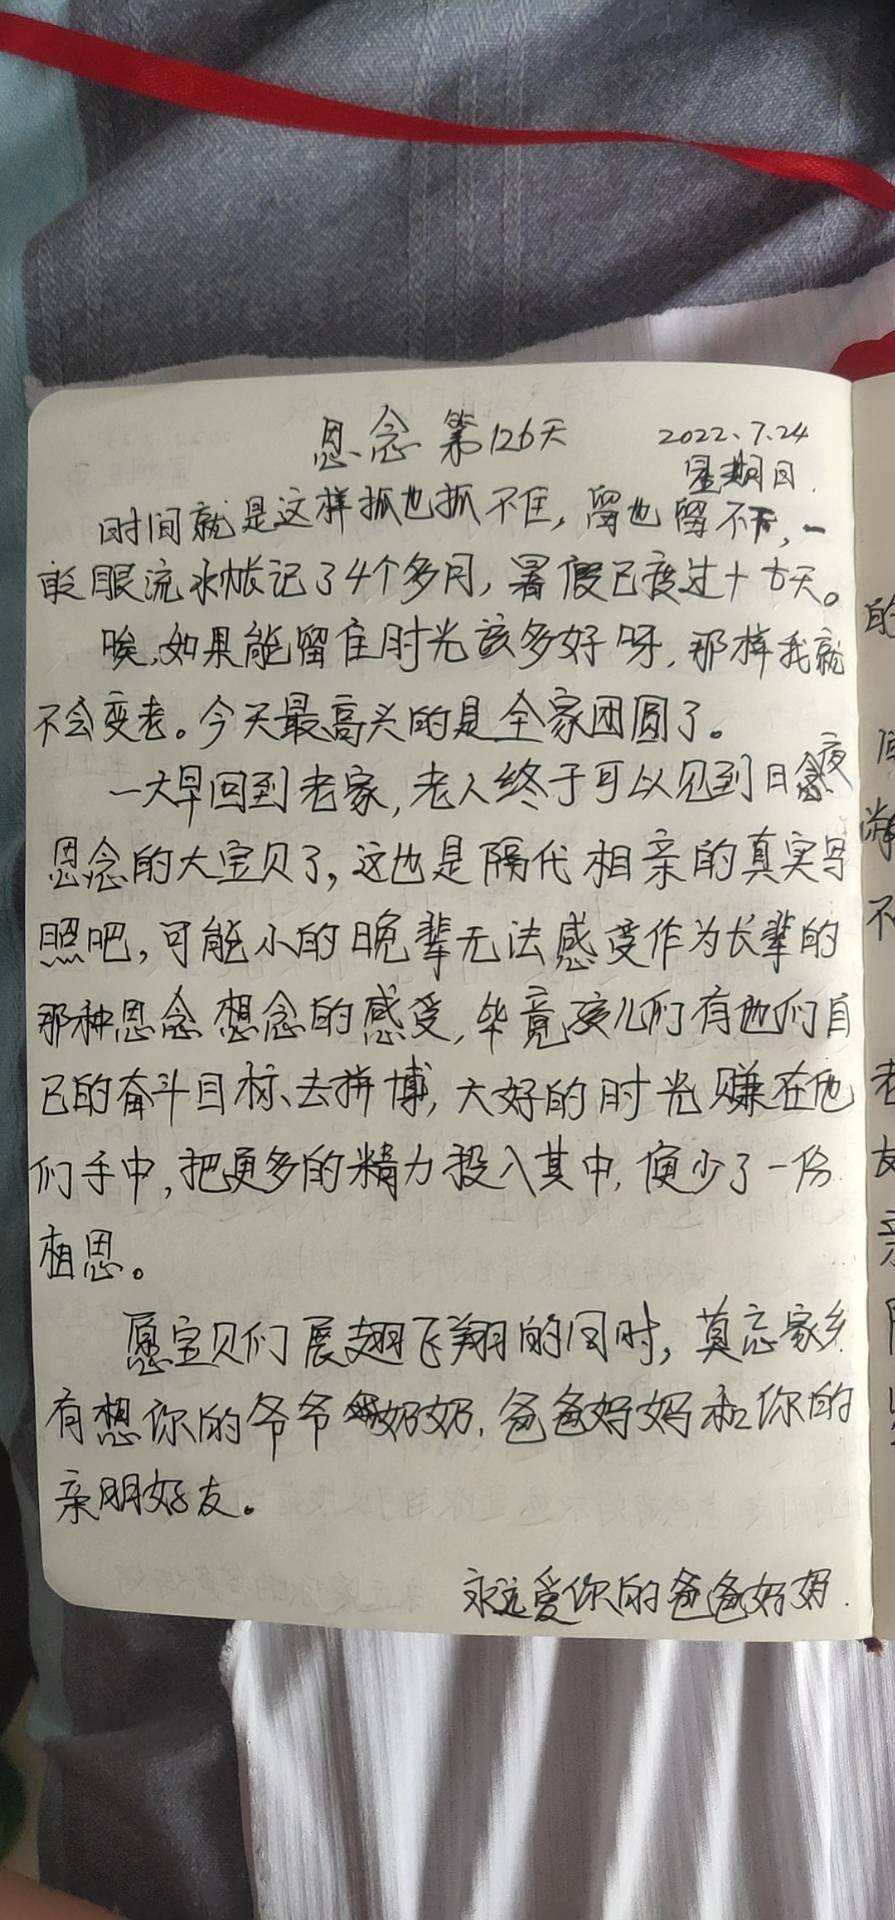 思念 第126天
2022、7.24
星期日.
时间就是这样抓也抓不住, 留也留不下, 一
眨眼流水帐记了4个多月, 暑假已度过十六天。
唉, 如果能留住时光该多好呀, 那样我就
不会变老。今天最高兴的是全家团圆了。
一大早回到老家, 老人终于可以见到日夜
思念的大宝贝了, 这也是隔代相亲的真实写
照吧, 可能小的晚辈无法感受作为长辈的
那种思念想念的感受, 毕竟孩儿们有他们自
已的奋斗目标、去拼博, 大好的时光赚在他
们手中, 把更多的精力投入其中, 便少了一份
相思。
愿宝贝们展翅飞翔的同时, 莫忘家乡
有想你的爷爷奶奶, 爸爸妈妈和你的
亲朋好友。
永远爱你的爸爸妈妈.
的
不
老
友
亲